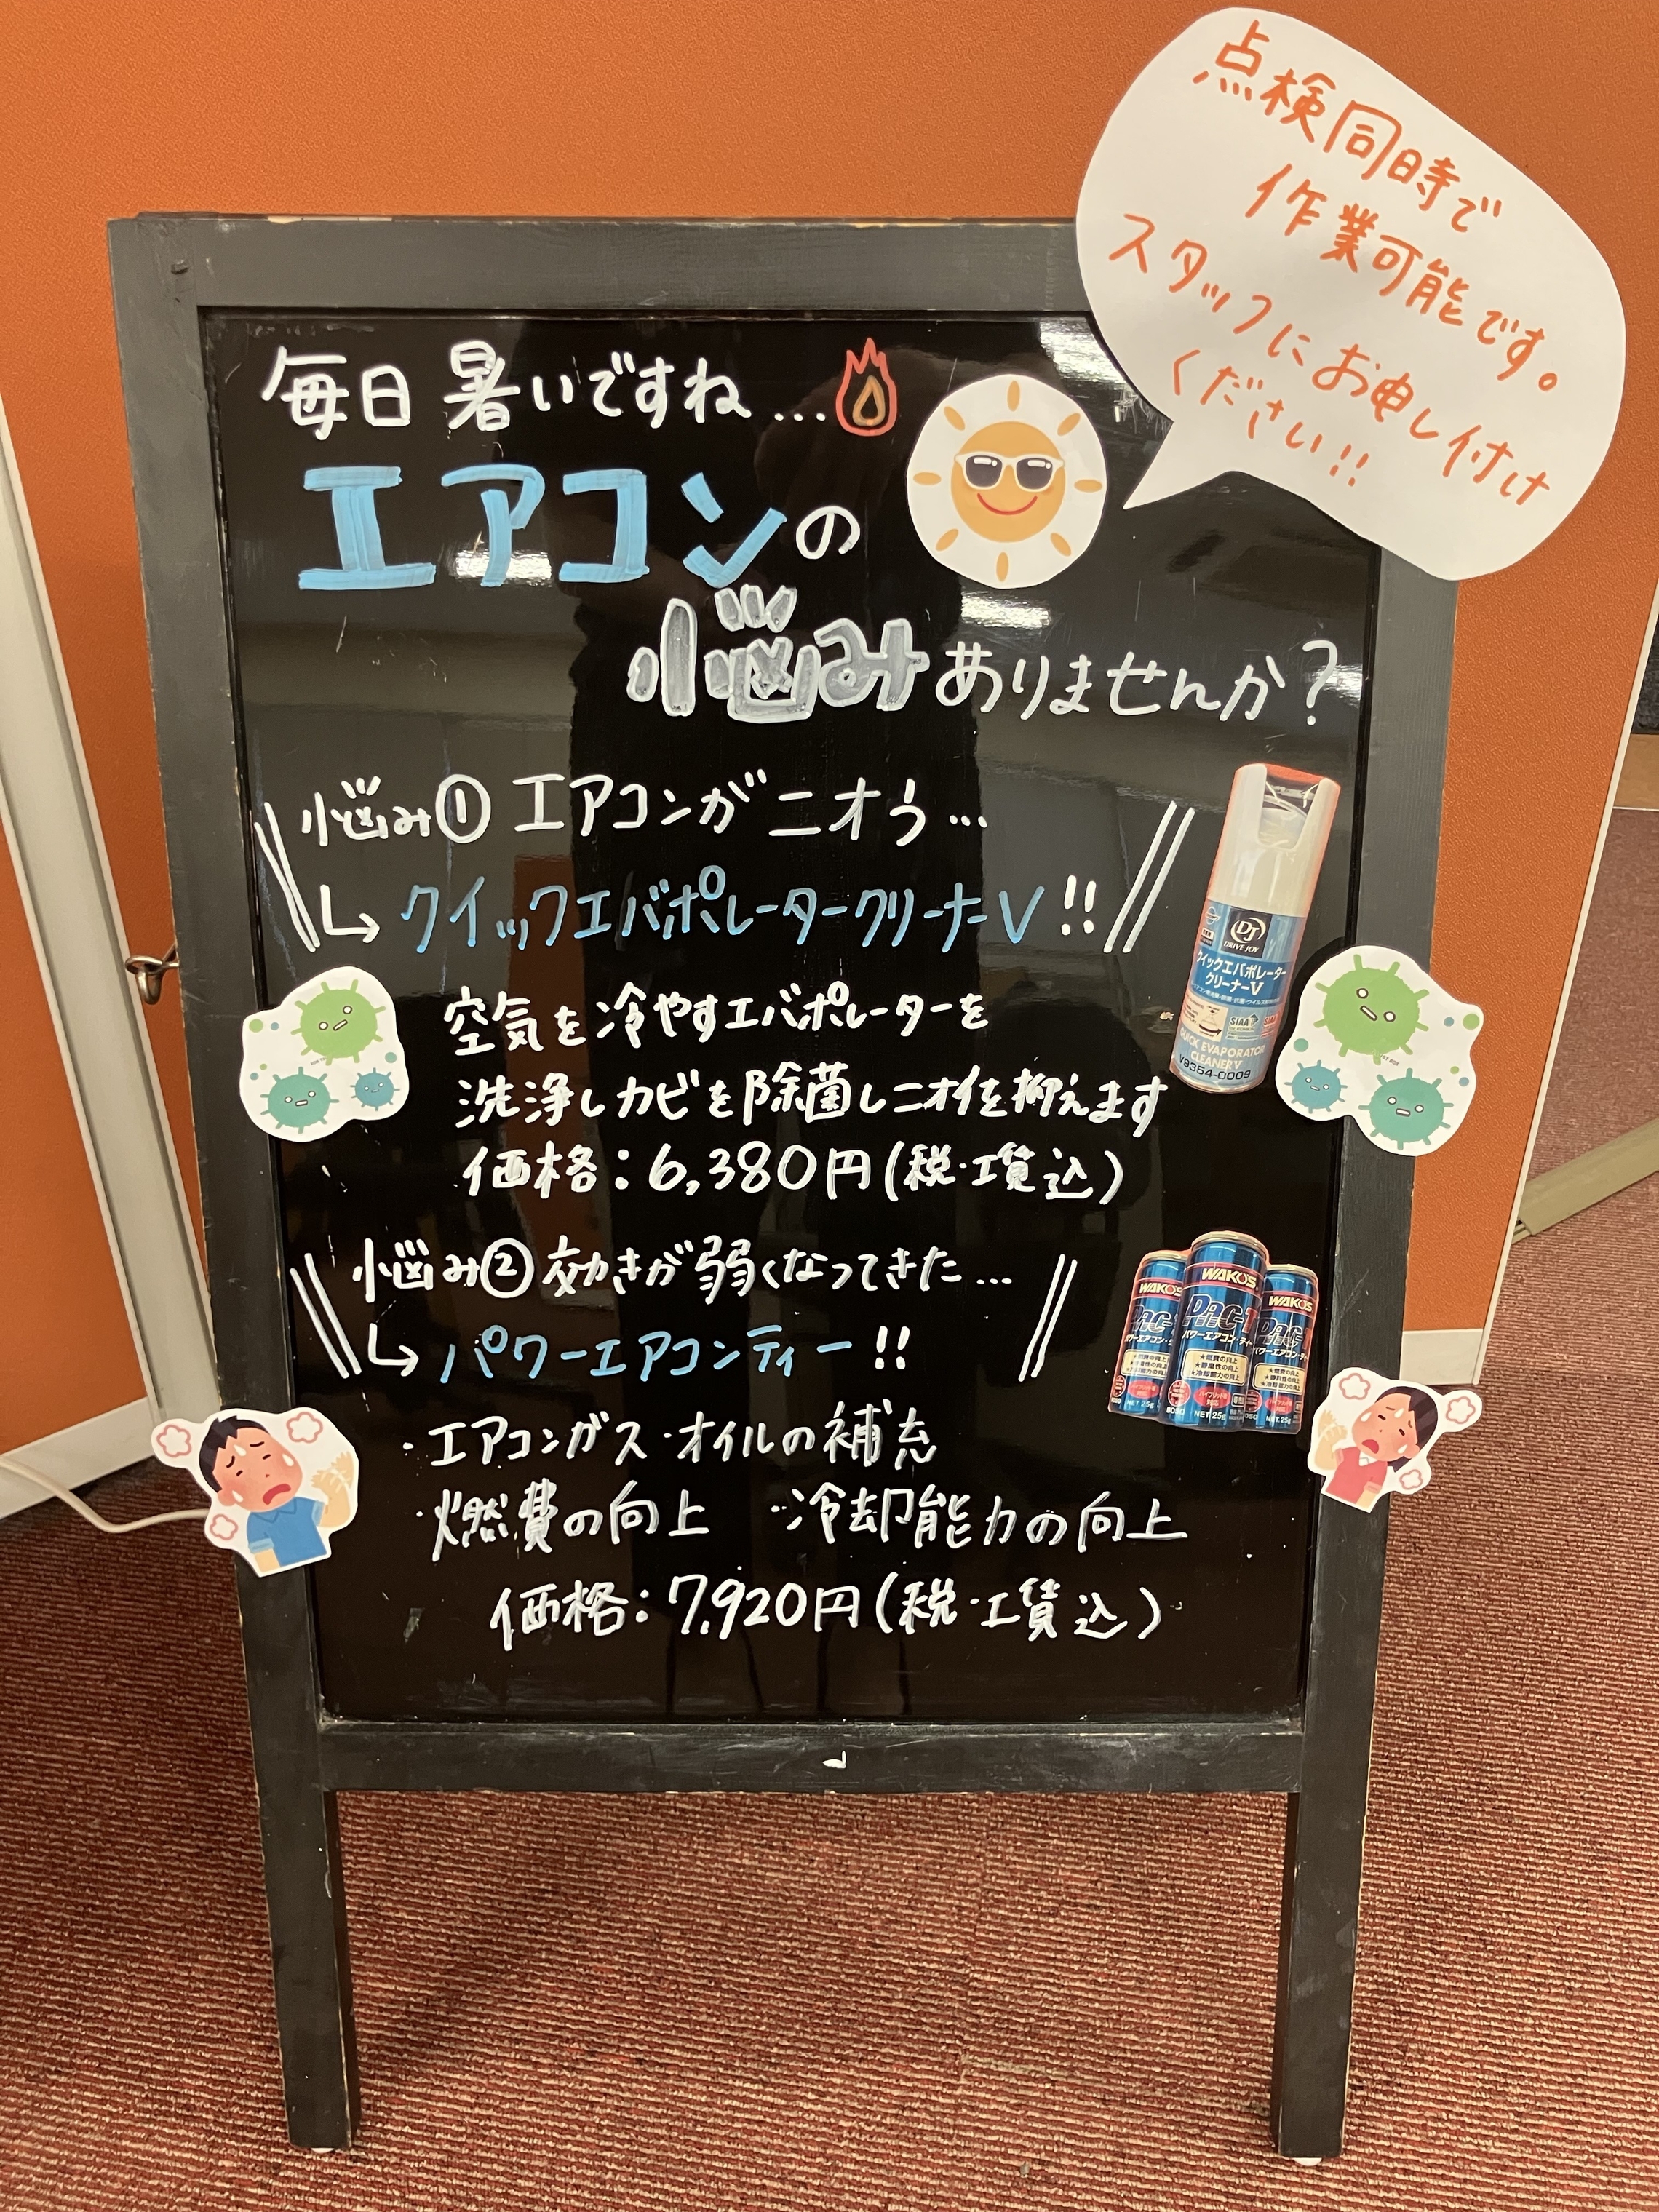 点検同時で
作業可能です。
スタッフにお申し付け
ください!!
毎日 暑いですね...
エアコンの
悩みありませんか?
悩み① エアコンがニオう...
↳ クイックエバポレータークリーナーV!!
空気を冷やすエバポレーターを
洗浄しカビを除菌しニオイを抑えます
価格:6,380円(税・工賃込)
DJ
DRIVE JOY
クイックエバポレーター
クリーナーV
SIAA
QUICK EVAPORATOR
CLEANER V
V9354-0009
悩み② 効きが弱くなってきた...
↳ パワーエアコンティー!!
・エアコンガス・オイルの補充
・燃費の向上 ・冷却能力の向上
価格:7,920円(税・工賃込)
WAKO'S
WAKO'S
WAKO'S
PAC-
パワーエアコン・ティー
★燃費の向上
★静粛性の向上
★冷却能力の向上
NET 25g
NET 25g